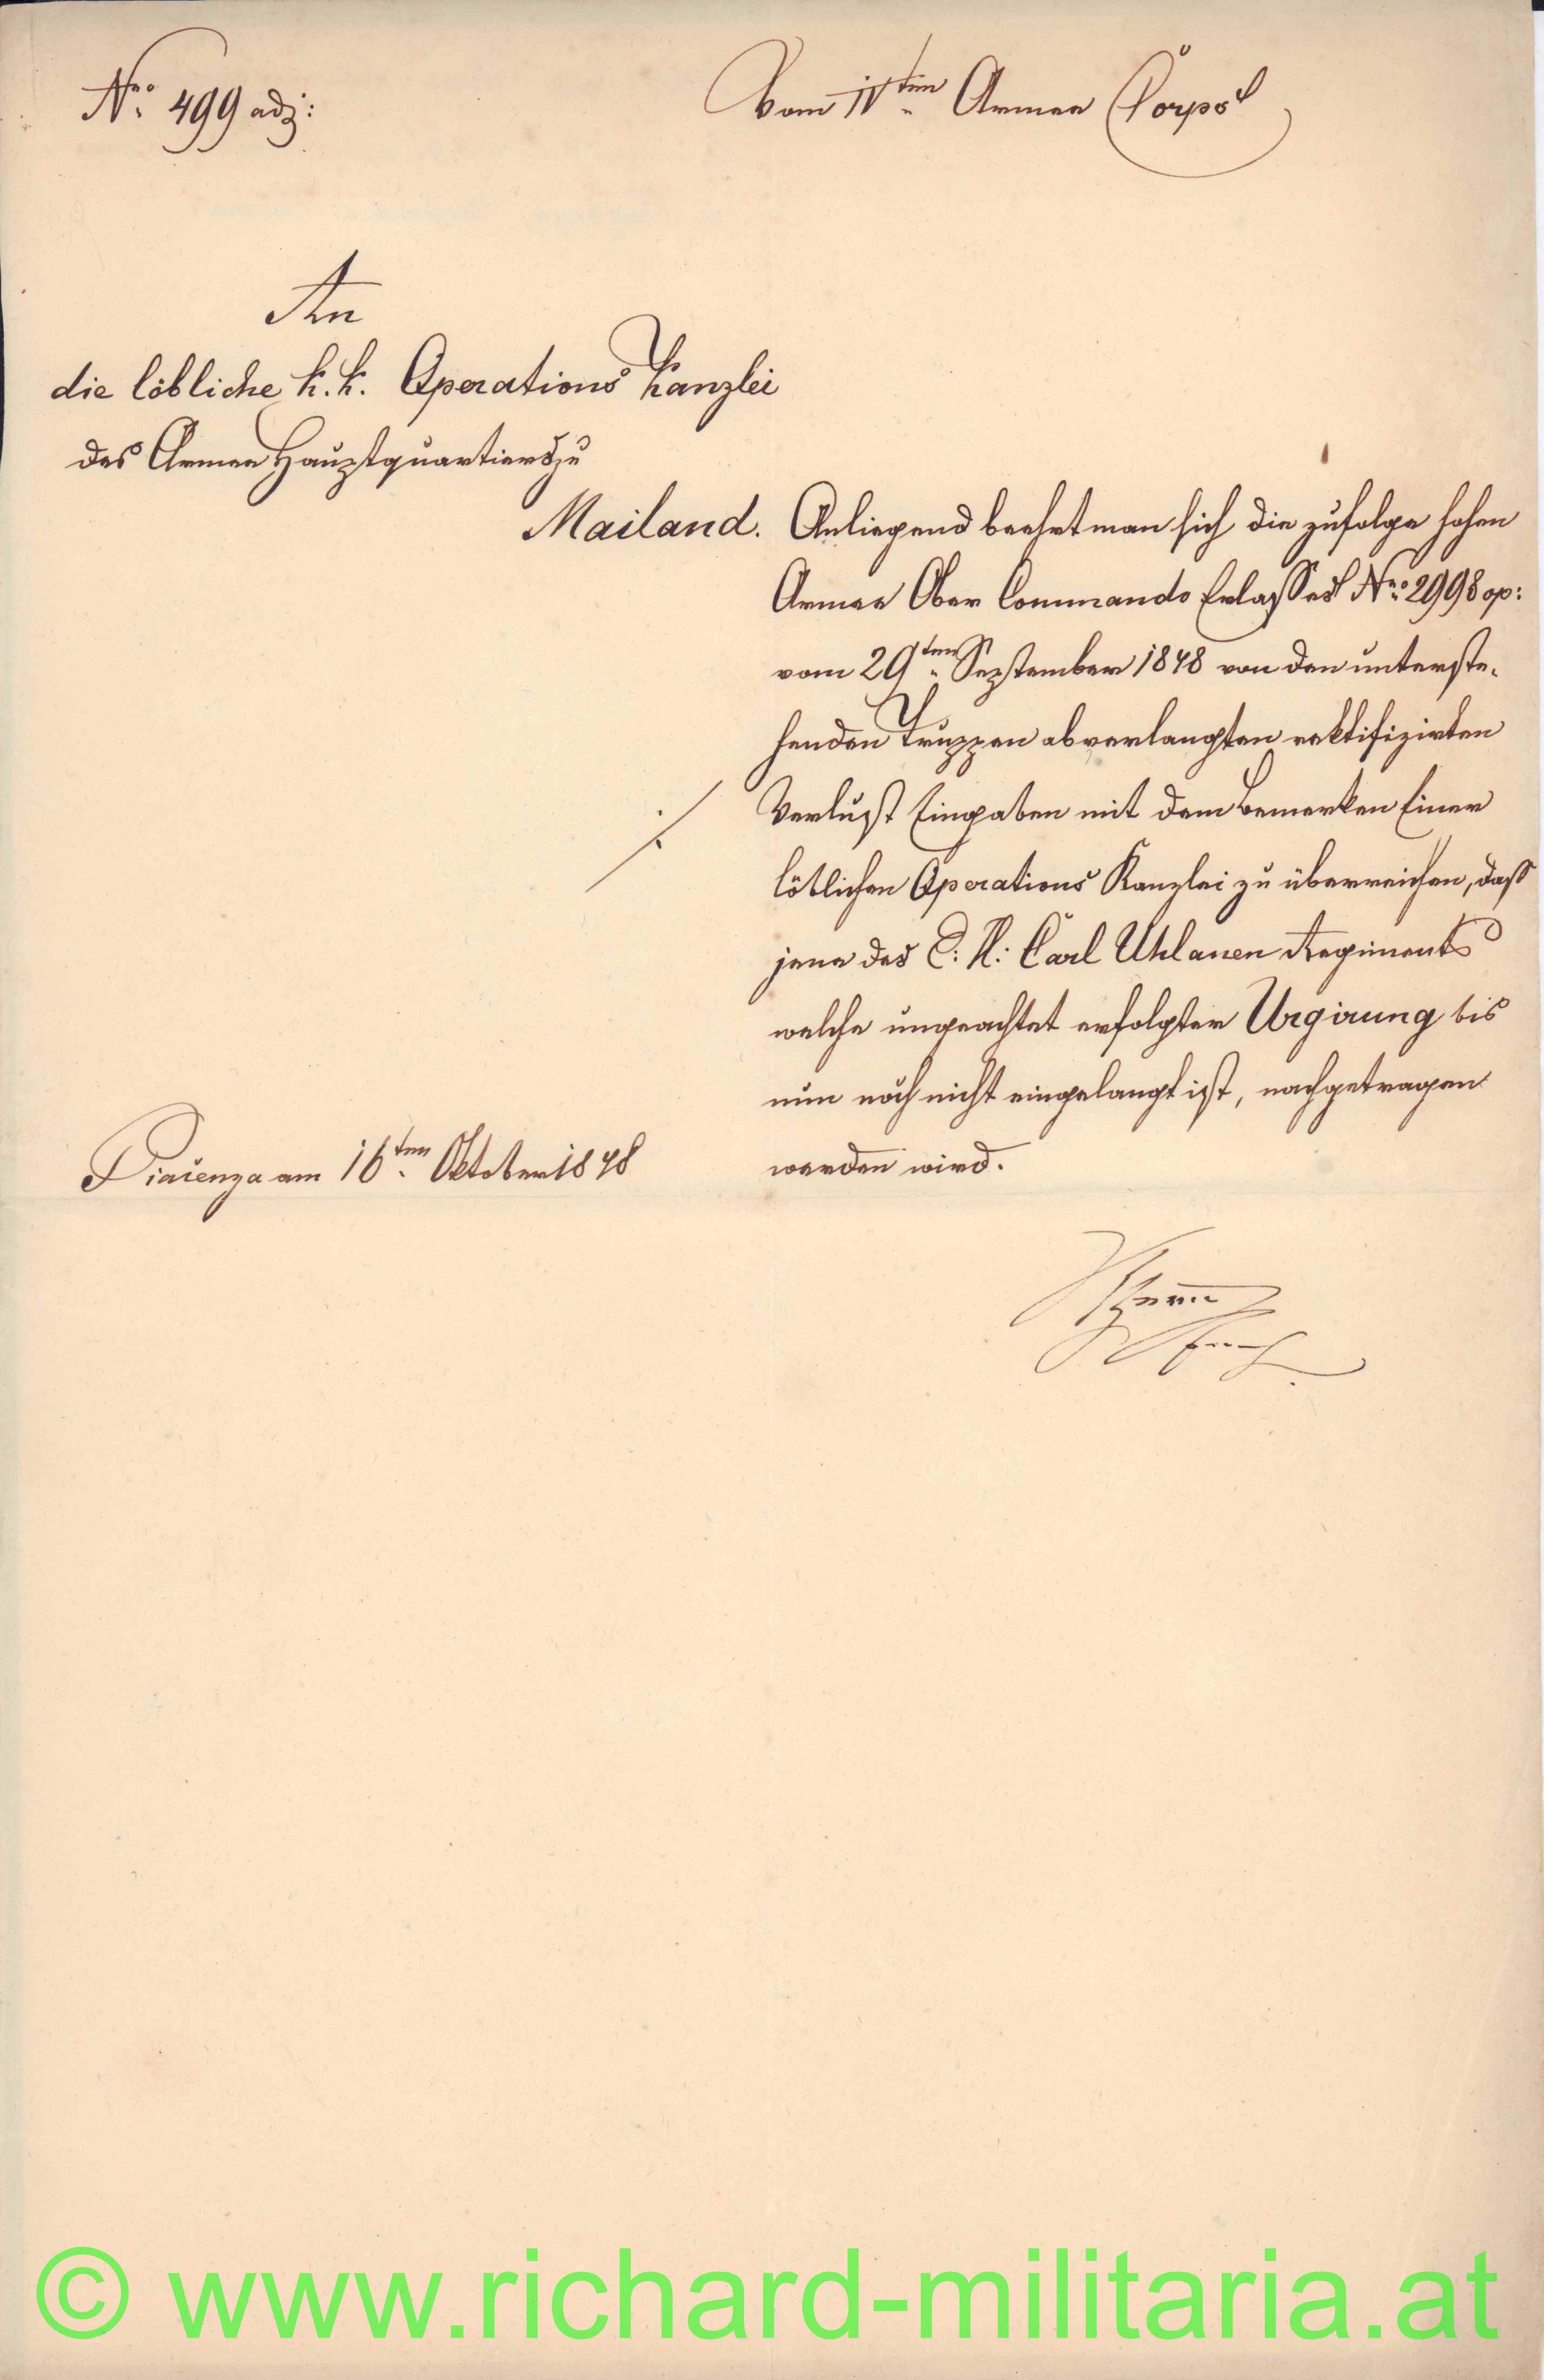 Nro. 499 adj:
Vom IVten Armee Corps
An
die löbliche k. k. Operations Kanzlei
des Armee Hauptquartiers zu
Mailand.
Anliegend beehrt man sich die zufolge hohen
Armee Ober Commando Erlasses Nro. 2998 op:
vom 29ten September 1848 von den unterste-
henden Truppen abverlangten rektifizirten
./. Verlust Eingaben mit dem Bemerken Einer
löblichen Operations Kanzlei zu überreichen, daß
jene des E: H: Carl Uhlanen Regiments
welche ungeachtet erfolgter Urgirung bis
nun noch nicht eingelangt ist, nachgetragen
werden wird.
Piacenza am 16ten Oktober 1848
© www.richard-militaria.at